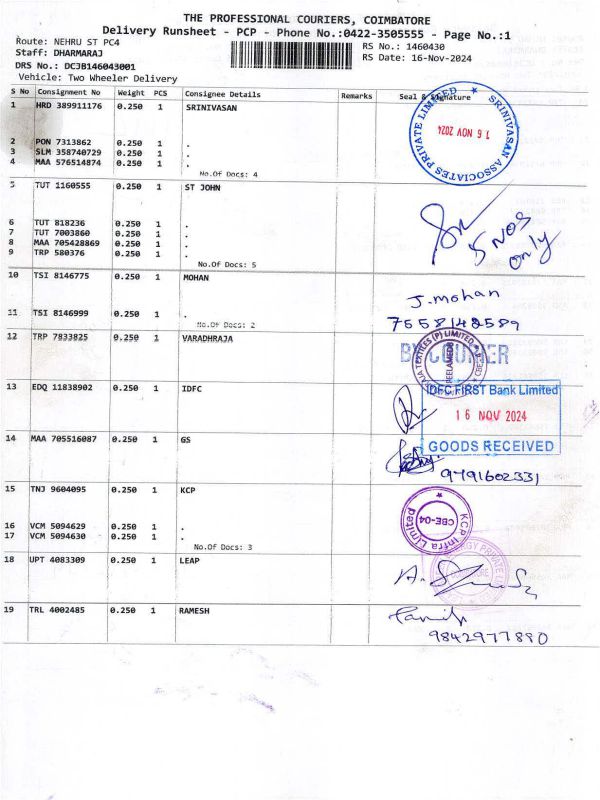 THE PROFESSIONAL COURIERS, COIMBATORE
Delivery Runsheet - PCP - Phone No.:0422-3505555 - Page No.:1
Route: NEHRU ST PC4
RS No.: 1460430
Staff: DHARMARAJ
RS Date: 16-Nov-2024
DRS No.: DCJB146043001
Vehicle: Two Wheeler Delivery
S No Consignment No Weight PCS Consignee Details Remarks Seal & Signature
1 HRD 389911176 0.250 1 SRINIVASAN
SRINIVASAN ASSOCIATES PRIVATE LIMITED
16 NOV 2024
2 PON 7313862 0.250 1 .
3 SLM 358740729 0.250 1 .
4 MAA 576514874 0.250 1 .
No.Of Docs: 4
5 TUT 1160555 0.250 1 ST JOHN
6 TUT 818236 0.250 1 .
7 TUT 7003860 0.250 1 .
8 MAA 705428869 0.250 1 .
9 TRP 580376 0.250 1 .
5 Nos
only
No.Of Docs: 5
10 TSI 8146775 0.250 1 MOHAN
J.mohan
11 TSI 8146999 0.250 1 .
7558142589
No.Of Docs: 2
12 TRP 7833825 0.250 1 VARADHRAJA
BY COURIER
13 EDQ 11838902 0.250 1 IDFC
IDFC FIRST Bank Limited
16 NOV 2024
GOODS RECEIVED
14 MAA 705516087 0.250 1 GS
9791602331
15 TNJ 9604095 0.250 1 KCP
KCP Infra Limited
CBE-04
16 VCM 5094629 0.250 1 .
17 VCM 5094630 0.250 1 .
No.Of Docs: 3
18 UPT 4083309 0.250 1 LEAP
19 TRL 4002485 0.250 1 RAMESH
9842977880